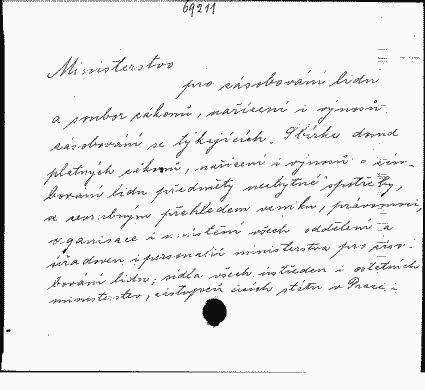 69211
Ministerstvo
pro zásobování lidu
a soubor zákonů, nařízení i výnosů
zásobování se týkajících. Sbírka dosud
platných zákonů, nařízení i výnosů o záso-
bování lidu předměty nezbytné spotřeby,
se seznamem přehledem vzniku, pravomoci,
organisace i umístění všech oddělení a
úřadoven i personalií ministerstva pro záso-
bování lidu; sídla všech ústředen i ostatních
ministerstev, zástupců cizích států v Praze i